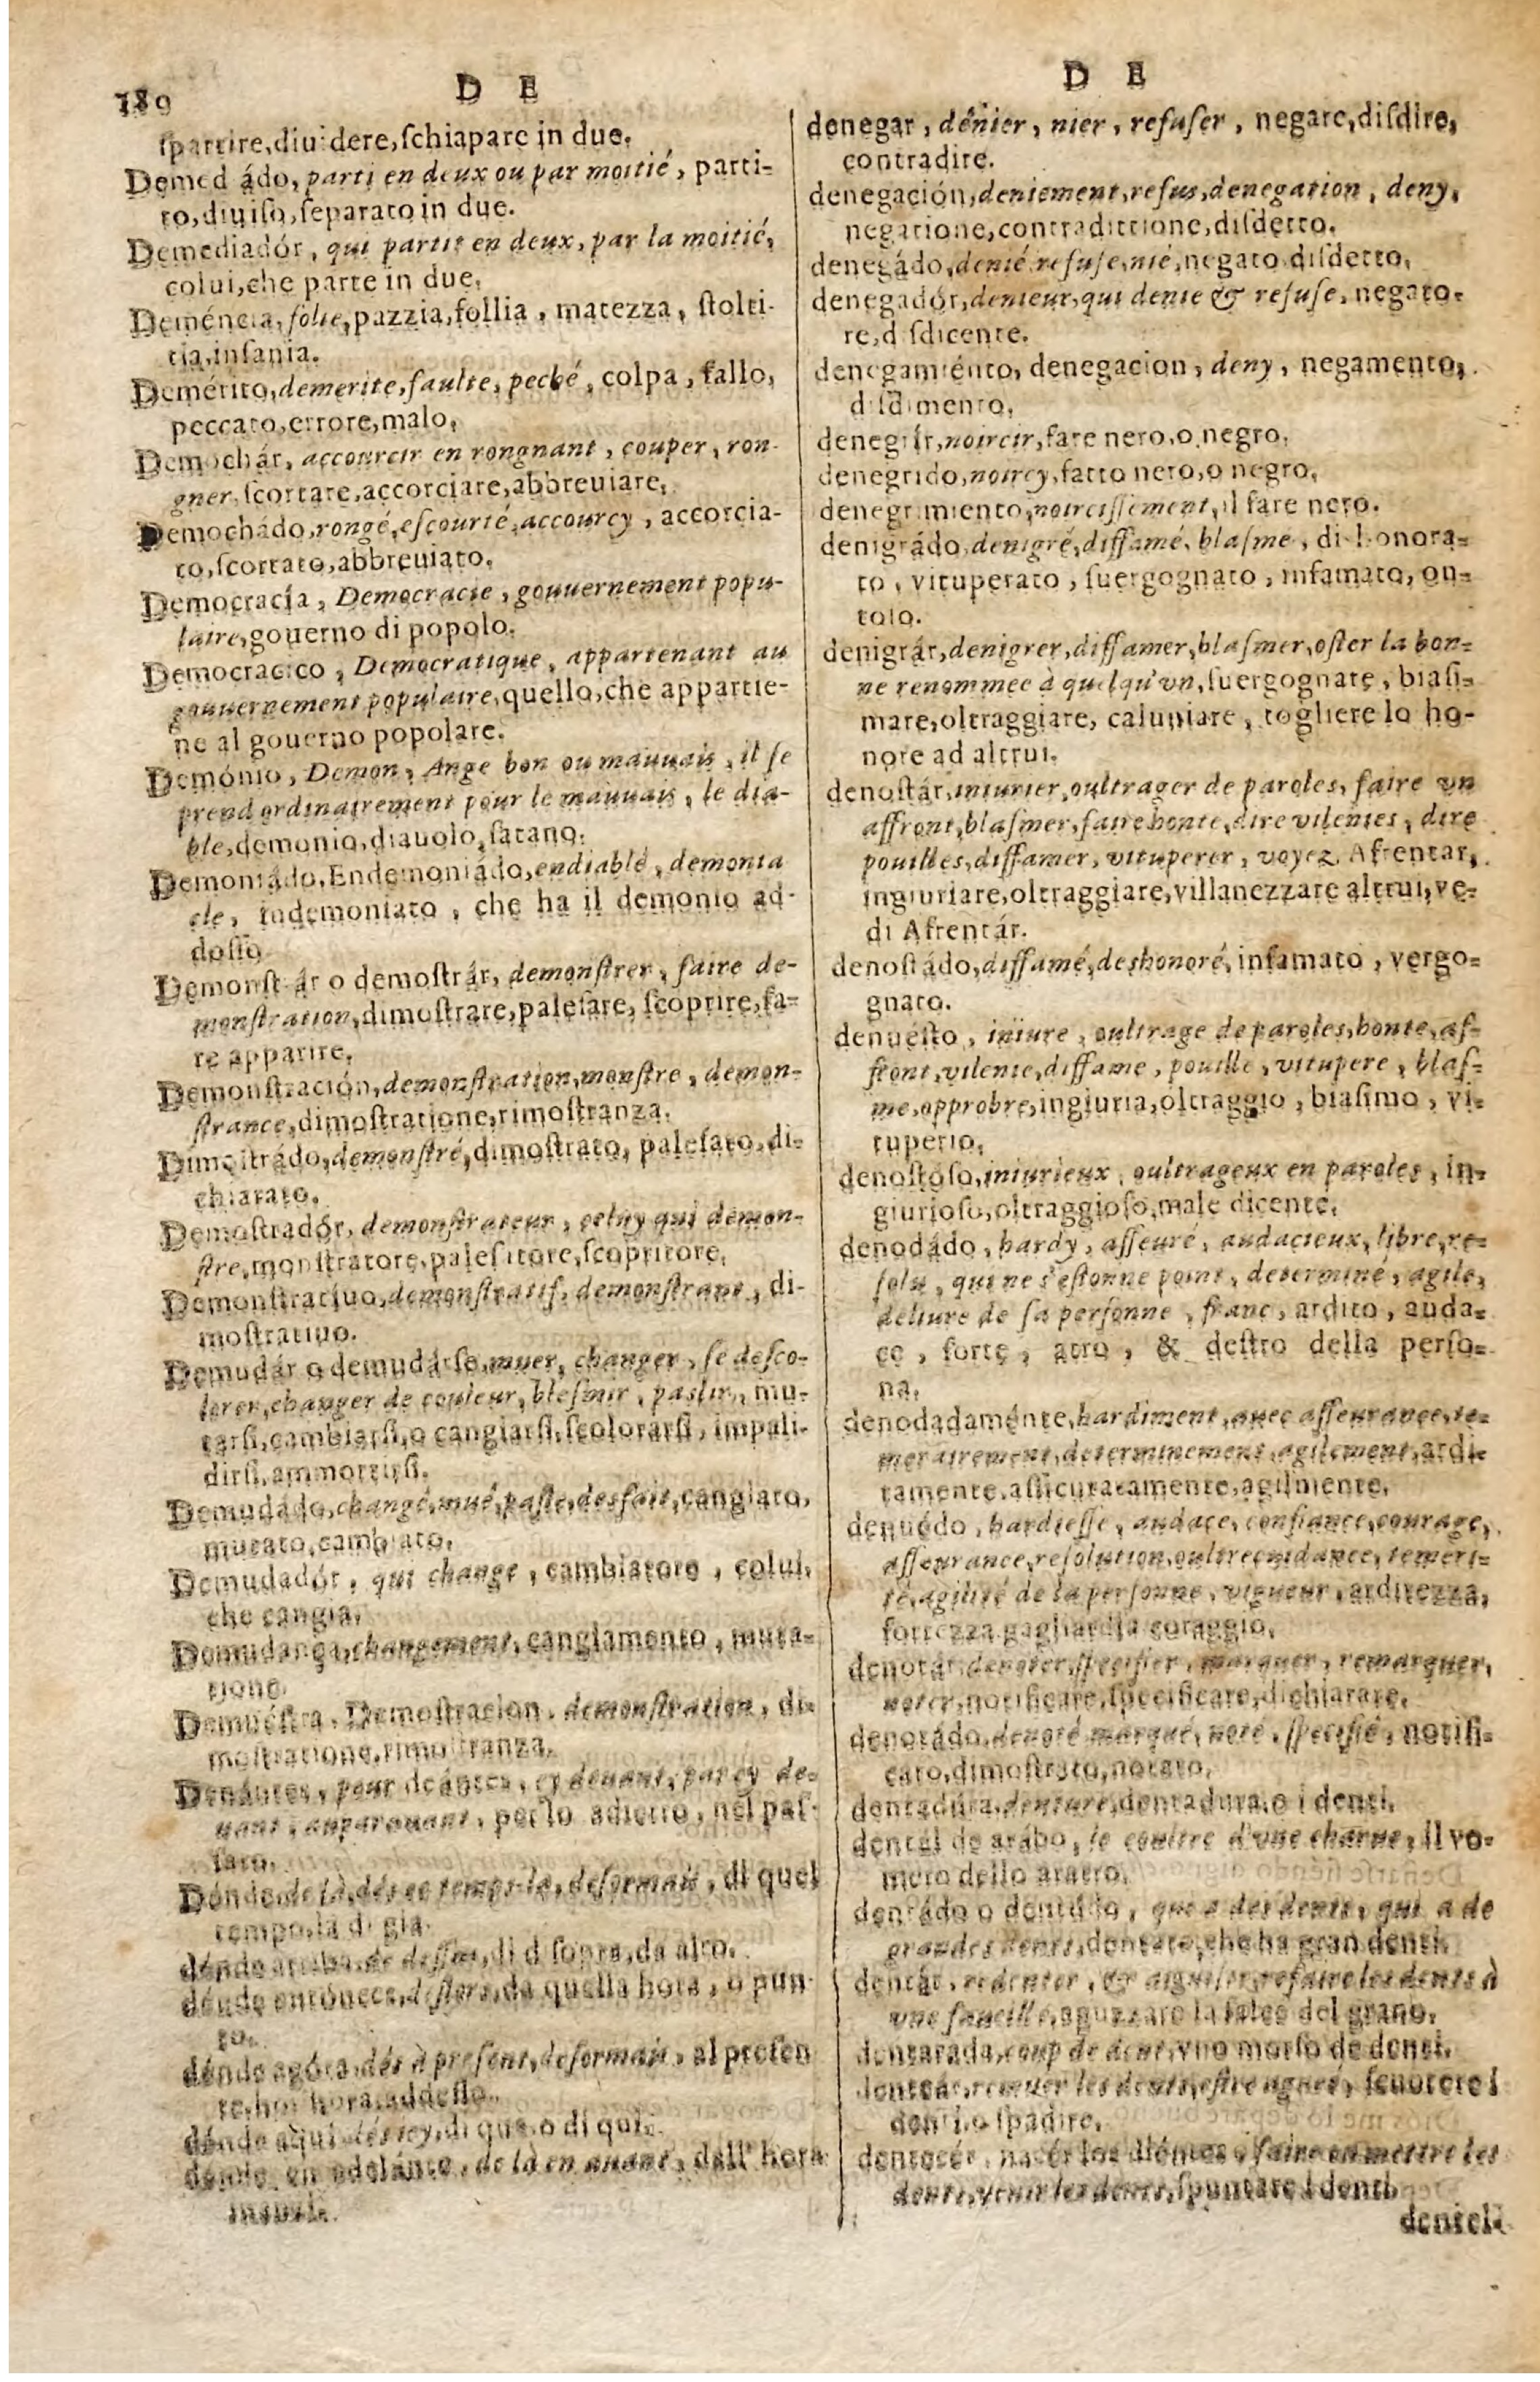 189
D E
ſpartire,diuidere,ſchiapare in due.
Demed ádo, parti en deux ou par moitié, parti-
to,diuiſo,ſeparato in due.
Demediadór, qui partit en deux, par la moitié,
colui,che parte in due,
Deméncia, folie,pazzia,follia, matezza, ſtolti-
tia,inſania.
Demérito,demerite,faulte, peché, colpa, fallo,
peccato,errore,malo,
Demochár, accourcir en rongnant, couper, ron-
gner, ſcortare,accorciare,abbreuiare,
Demochádo,rongé,eſcourté,accourcy, accorcia-
to,ſcortato,abbreuiato.
Democracía, Democracie, gouuernement popu-
laire,gouerno di popolo.
Democratico, Democratique, appartenant au
gouuernement populaire,quello,che appartie-
ne al gouerno popolare.
Demónio, Demon, Ange bon ou mauuais, il ſe
prend ordinairement pour le mauuais, le dia-
ble,demonio,diauolo,ſatano.
Demoniádo,Endemoniádo,endiablé, demonia
cle, indemoniato, che ha il demonio ad-
doſſo
Demonſt ár o demoſtrár, demonſtrer, faire de-
monſtration,dimoſtrare,paleſare, ſcoprire,fa-
re apparire.
Demonſtración,demonſtration,monſtre, demon-
ſtrance,dimoſtratione,rimoſtranza.
Dimoſtrádo,demonſtré,dimoſtrato, paleſato,di-
chiarato.
Demoſtradór, demonſtrateur, celuy qui démon-
ſtre,monſtratore,paleſitore,ſcopritore,
Demonſtratiuo,demonſtratif, demonſtrant, di-
moſtratiuo.
Demudár o demudárſe,muer, changer, ſe deſco-
lorer,changer de couleur,bleſmir, paslir, mu-
tarſi,cambiarſi,o cangiarſi,ſcolorarſi, impali-
dirſi,ammortirſi.
Demudádo,changé,mué,paſle,desfait,cangiato,
mutato,cambiato,
Demudadór, qui change, cambiatore, colui,
che cangia,
Demudança,changement,cangiamento, muta-
tione.
Demuéſtra, Demoſtracion, demonſtration, di-
moſtratione,rimoſtranza.
Denántes, pour deántes, cy deuant, par cy de-
uant, auparauant, per lo adietro, nel paſ-
ſato.
Dénde,de là,dés ce temps-là,deſormais, di quel
tempo,là di gia.
dénde arriba,de deſſus,di d ſopra,da alto.
dénde entónces,deſlors,da quella hora, o pun-
to.
dénde agóra,dés à preſent,deſormais, al preſen
te,hoi hora,addeſſo.
dénde aqui dés icy,di qua,o di qui.
dende en adelánte, de là en auant, dall'hora
inanzi.
D E
denegar, dénier, nier, refuſer, negare,diſdire,
contradire.
denegación,deniement,refus,denegation, deny,
negatione,contradittione,diſdetto.
denegádo,denié,refuſé,nié,negato diſdetto,
denegadór,denieur,qui denie & refuſe, negato-
re,d ſdicente.
denegamiénto, denegacion, deny, negamento,
diſdimento,
denegrír,noircir,fare nero,o negro,
denegrido,noircy,fatto nero,o negro,
denegrimiento,noirciſſement,il fare nero.
denigrádo,denigré,diffamé,blaſmé, dishonora-
to, vituperato, ſuergognato, infamato, on-
toſo.
denigrár,denigrer,diffamer,blaſmer,oſter la bon-
ne renommee à quelqu'vn,ſuergognare, biaſi-
mare,oltraggiare, caluniare, togliere lo ho-
nore ad altrui.
denoſtár,iniurier,oultrager de paroles, faire vn
affront,blaſmer,faire honte,dire vilenies, dire
pouilles,diffamer, vituperer, voyez Afrentar,
ingiuriare,oltraggiare,villanezzare altrui,ve-
di Afrentár.
denoſtádo,diffamé,deshonoré,infamato, vergo-
gnato.
denuéſto, iniure, oultrage de paroles,honte,af-
front,vilenie,diffame, pouille, vitupere, blaſ-
me,opprobre,ingiuria,oltraggio, biaſimo, vi-
tuperio,
denoſtoſo,iniurieux, oultrageux en paroles, in-
giurioſo,oltraggioſo,male dicente,
denodádo, hardy, aſſeuré, audacieux, libre,re-
ſolu, qui ne s'eſtonne point, determiné, agile,
deliure de ſa perſonne, franc, ardito, auda-
ce, forte, atro, & deſtro della perſo-
na,
denodadaménte,hardiment,auec aſſeurance,te-
merairement,determinement,agilement,ardi-
tamente,aſſicuratamente,agilmente,
denuédo, hardieſſe, audace, confiance,courage,
aſſeurance,reſolution,oultrecuidance, temeri-
té,agilité de la perſonne, vigueur, arditezza,
fortezza gagliardia coraggio,
denotár,denoter,ſpecifier, marquer, remarquer,
noter,notificare,ſpecificare,dichiarare,
denotádo,denoté marqué,noté, ſpecifié, notifi-
cato,dimoſtrato,notato,
dentadúra,denture,dentadura,o i denti.
dentál de arádo, le coultre d'vne charue, il vo-
mero dello aratro,
dentádo o dentúdo, que a des dents, qui a de
grandes dents,dentato,che ha gran denti.
dentár, redenter, & aiguiſer,refaire les dents à
vne faucille,aguzzare la falce del grano,
dentarada,coup de dent,vno morſo de denti.
dentear,remuer les dents,eſtre agnés, ſcuotere i
denti,o ſpadire,
dentecér, nacér los diéntes, faire ou mettre les
dents,venir les dents,ſpuntare i denti.
dentel-